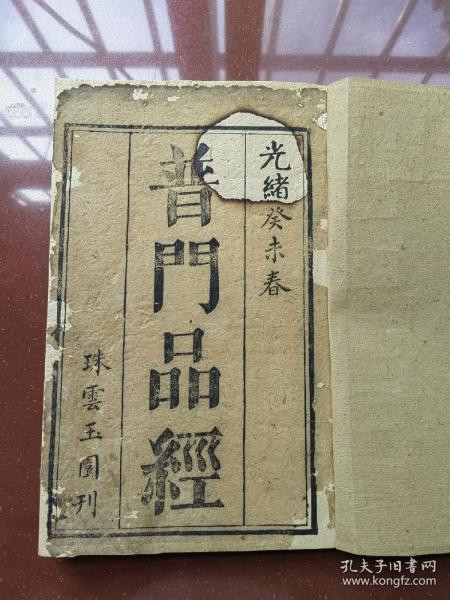 光緒癸未春
普門品經
珠雲玉圓刊
孔夫子旧书网
www.kongfz.com